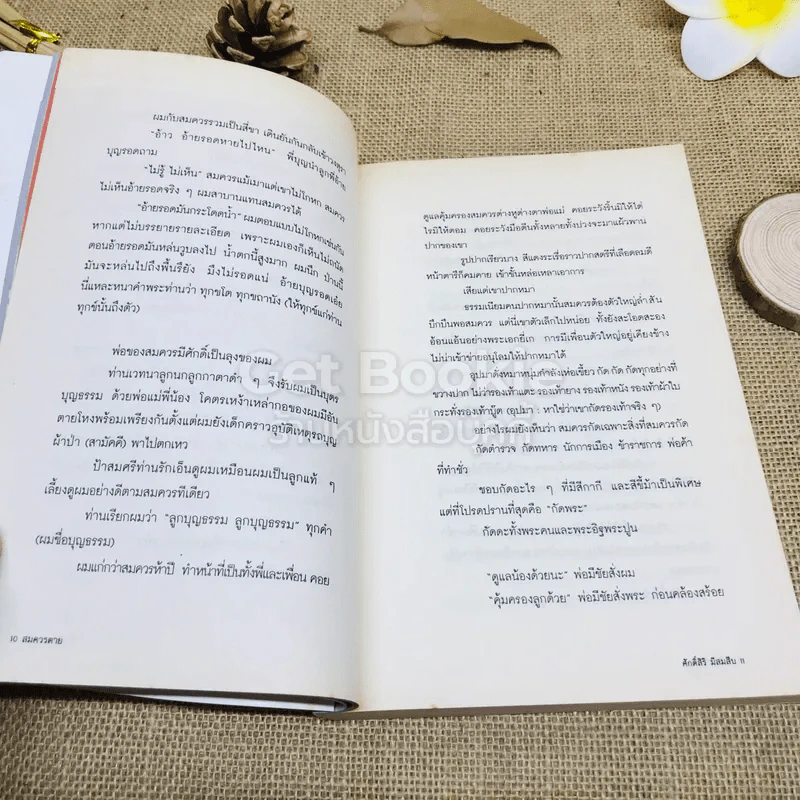 ผมกับสมควรรวมเป็นสี่ขา เดินยันกันกลับเข้าวงสุรา
"อ้าว อ้ายรอดหายไปไหน" พี่บุญนำลูกพี่อ้าย
บุญรอดถาม
"ไม่รู้ ไม่เห็น" สมควรแม้เมาแต่เขาไม่โกหก สมควร
ไม่เห็นอ้ายรอดจริง ๆ ผมสาบานแทนสมควรได้
"อ้ายรอดมันกระโดดน้ำ" ผมตอบแบบไม่โกหกเช่นกัน
หากแต่ไม่บรรยายรายละเอียด เพราะผมเองก็เห็นไม่ถนัด
ตอนอ้ายรอดมันหล่นวูบลงไป น้ำตกนี้สูงมาก ผมนึก ป่านนี้
มันจะหล่นไปถึงพื้นรึยัง มึงไม่รอดแน่ อ้ายบุญรอดเอ๋ย
นี่แหละหนาคำพระท่านว่า ทุกขโต ทุกขถานัง (ให้ทุกข์แก่ท่าน
ทุกข์นั้นถึงตัว)
พ่อของสมควรมีศักดิ์เป็นลุงของผม
ท่านเวทนาลูกนกลูกกาตาดำ ๆ จึงรับผมเป็นบุตร
บุญธรรม ด้วยพ่อแม่พี่น้อง โคตรเหง้าเหล่ากอของผมมีอัน
ตายโหงพร้อมเพรียงกันตั้งแต่ผมยังเด็กคราวอุบัติเหตุรถบุญ
ผ้าป่า (สามัคคี) พาไปตกเหว
ป้าสมศรีท่านรักเอ็นดูผมเหมือนผมเป็นลูกแท้ ๆ
เลี้ยงดูผมอย่างดีตามสมควรทีเดียว
ท่านเรียกผมว่า "ลูกบุญธรรม ลูกบุญธรรม" ทุกคำ
(ผมชื่อบุญธรรม)
ผมแก่กว่าสมควรห้าปี ทำหน้าที่เป็นทั้งพี่และเพื่อน คอย
10 สมควรตาย
ดูแลคุ้มครองสมควรต่างหูต่างตาพ่อแม่ คอยระวังริ้นมิให้ไต่
ไรมิให้ตอม คอยระวังมือตีนทั้งหลายทั้งปวงจะมาแผ้วพาน
ปากของเขา
รูปปากเรียวบาง สีแดงระเรื่อราวปากสตรีที่เลือดลมดี
หน้าตารึก็คมคาย เข้าขั้นหล่อเหลาเอาการ
เสียแต่เขาปากหมา
ธรรมเนียมคนปากหมานั้นสมควรต้องตัวใหญ่ล่ำสัน
บึกบึนพอสมควร แต่นี่เขาตัวเล็กไปหน่อย ทั้งยังสะโอดสะอง
อ้อนแอ้นอย่างพระเอกยี่เก การมีเพื่อนตัวใหญ่อยู่เคียงข้าง
ไม่น่าเข้าข่ายอนุโลมให้ปากหมาได้
อุปมาดังหมาหนุ่มกำลังเห่อเขี้ยว กัด กัด กัดทุกอย่างที่
ขวางปาก ไม่ว่ารองเท้าแตะ รองเท้ายาง รองเท้าหนัง รองเท้าผ้าใบ
กระทั่งรองเท้าบู๊ต (อุปมา : หาใช่ว่าเขากัดรองเท้าจริง ๆ)
อย่างไรผมยังเห็นว่า สมควรกัดเฉพาะสิ่งที่สมควรกัด
กัดตำรวจ กัดทหาร นักการเมือง ข้าราชการ พ่อค้า
ที่ทำชั่ว
ชอบกัดอะไร ๆ ที่มีสีกากี และสีขี้ม้าเป็นพิเศษ
แต่ที่โปรดปรานที่สุดคือ "กัดพระ"
กัดดะทั้งพระคนและพระอิฐพระปูน
"ดูแลน้องด้วยนะ" พ่อมีชัยสั่งผม
"คุ้มครองลูกด้วย" พ่อมีชัยสั่งพระ ก่อนคล้องสร้อย
ศักดิ์สิริ มีสมสืบ 11
Get Bookie
ร้านหนังสือบุ๊คกี้